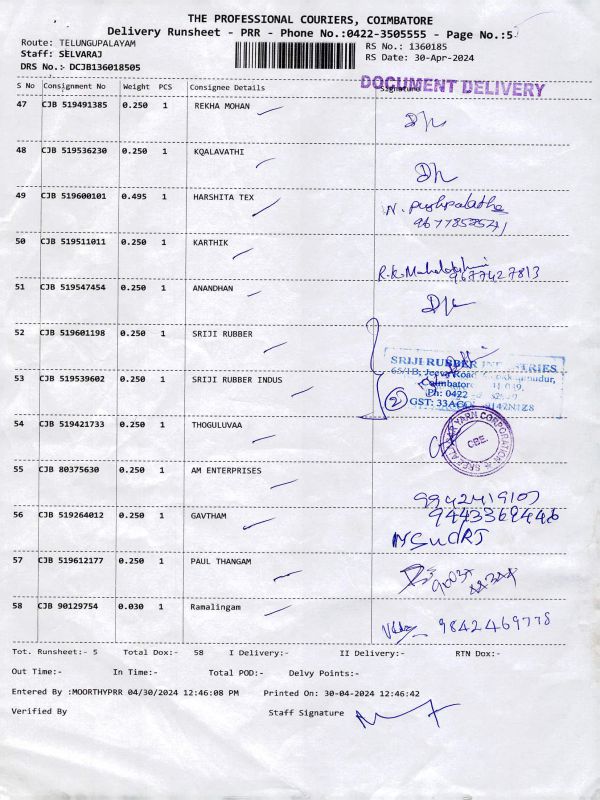 THE PROFESSIONAL COURIERS, COIMBATORE
Delivery Runsheet - PRR - Phone No.:0422-3505555 - Page No.:5
Route: TELUNGUPALAYAM
RS No.: 1360185
Staff: SELVARAJ
RS Date: 30-Apr-2024
DRS No.:- DCJB136018505
DOCUMENT DELIVERY
S No Consignment No Weight PCS Consignee Details Signature
47 CJB 519491385 0.250 1 REKHA MOHAN
48 CJB 519536230 0.250 1 KQALAVATHI
49 CJB 519600101 0.495 1 HARSHITA TEX
N. pushpalatha
50 CJB 519511011 0.250 1 KARTHIK
9677427813
51 CJB 519547454 0.250 1 ANANDHAN
52 CJB 519601198 0.250 1 SRIJI RUBBER
SRIJI RUBBER INDUSTRIES
65/1B, Jeeva Road
53 CJB 519539602 0.250 1 SRIJI RUBBER INDUS
Coimbatore
Ph: 0422
2
GST: 33A
54 CJB 519421733 0.250 1 THOGULUVAA
YARN CORPORATION
CBE.
55 CJB 80375630 0.250 1 AM ENTERPRISES
56 CJB 519264012 0.250 1 GAVTHAM
57 CJB 519612177 0.250 1 PAUL THANGAM
58 CJB 90129754 0.030 1 Ramalingam
9842469778
Tot. Runsheet:- 5 Total Dox:- 58 I Delivery:- II Delivery:- RTN Dox:-
Out Time:- In Time:- Total POD:- Delvy Points:-
Entered By :MOORTHYPRR 04/30/2024 12:46:08 PM Printed On: 30-04-2024 12:46:42
Verified By Staff Signature